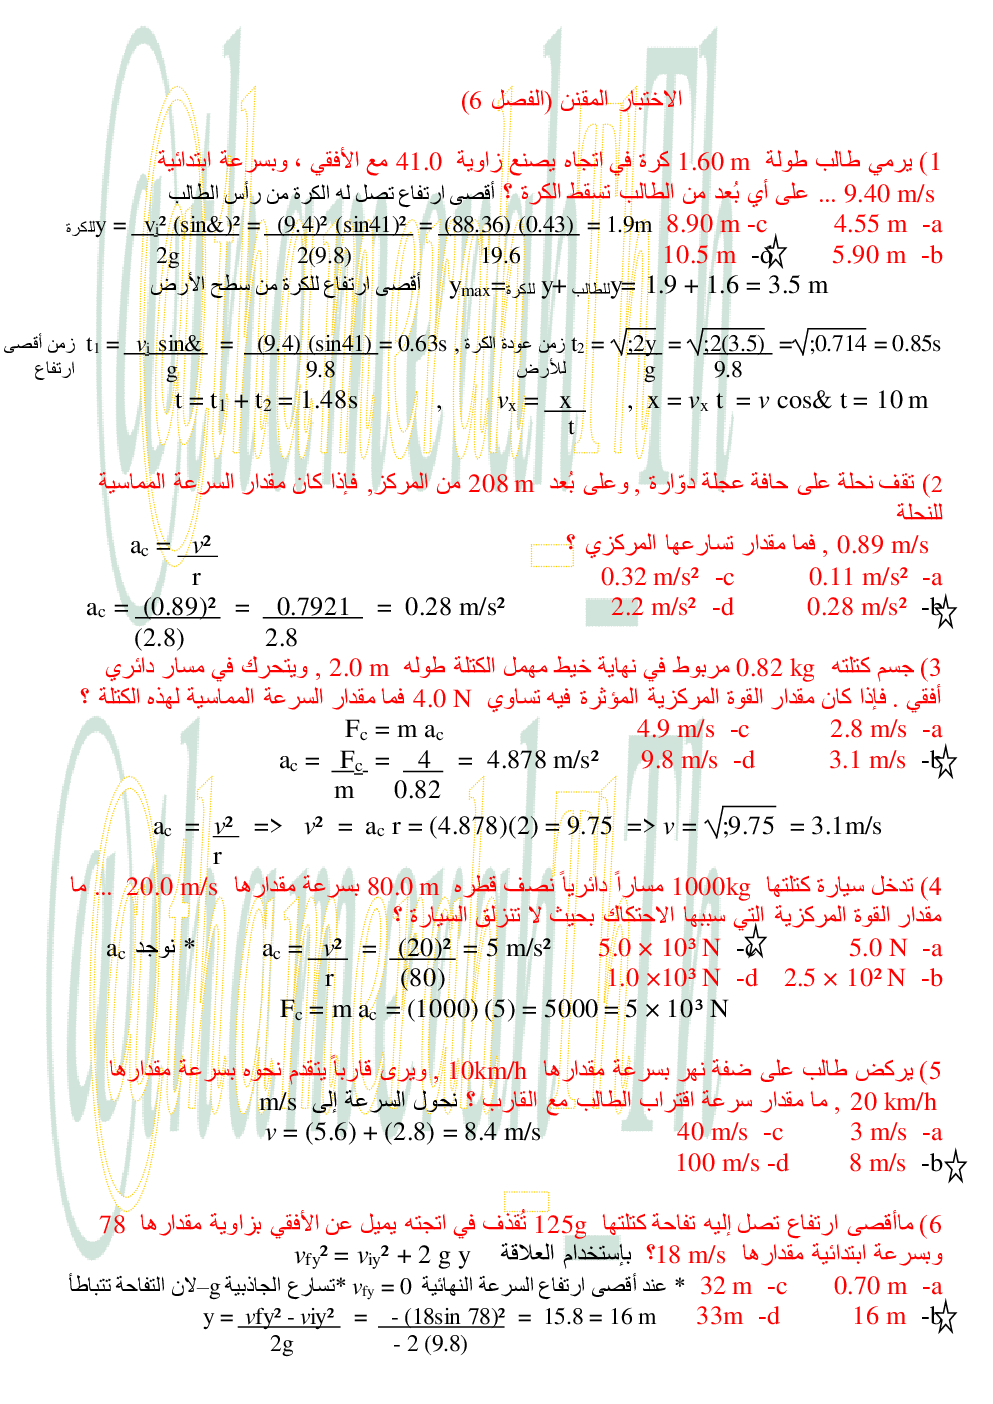 الاختبار المقنن (الفصل 6)
1) يرمي طالب طولة 1.60 m كرة في اتجاه يصنع زاوية 41.0 مع الأفقي ، وبسرعة ابتدائية
9.40 m/s ... على أي بُعد من الطالب تسقط الكرة ؟ أقصى ارتفاع تصل له الكرة من رأس الطالب
4.55 m -a 8.90 m -c للكرةy = vᵢ² (sin&)² = (9.4)² (sin41)² = (88.36) (0.43) = 1.9m
5.90 m -b 10.5 m -d 2g 2(9.8) 19.6
أقصى ارتفاع للكرة من سطح الأرض ymax=للكرة y+ للطالبy= 1.9 + 1.6 = 3.5 m
زمن أقصى t₁ = vᵢ sin& = (9.4) (sin41) = 0.63s , زمن عودة الكرة t₂ = √;2y = √;2(3.5) =√;0.714 = 0.85s
ارتفاع g 9.8 للأرض g 9.8
t = t₁ + t₂ = 1.48s , vₓ = x , x = vₓ t = v cos& t = 10 m
t
2) تقف نحلة على حافة عجلة دوّارة , وعلى بُعد 208 m من المركز, فإذا كان مقدار السرعة المماسية
للنحلة
0.89 m/s , فما مقدار تسارعها المركزي ؟ ac = v²
0.11 m/s² -a 0.32 m/s² -c r
0.28 m/s² -b 2.2 m/s² -d ac = (0.89)² = 0.7921 = 0.28 m/s²
(2.8) 2.8
3) جسم كتلته 0.82 kg مربوط في نهاية خيط مهمل الكتلة طوله 2.0 m , ويتحرك في مسار دائري
أفقي . فإذا كان مقدار القوة المركزية المؤثرة فيه تساوي 4.0 N فما مقدار السرعة المماسية لهذه الكتلة ؟
2.8 m/s -a 4.9 m/s -c Fc = m ac
3.1 m/s -b 9.8 m/s -d ac = Fc = 4 = 4.878 m/s²
m 0.82
ac = v² => v² = ac r = (4.878)(2) = 9.75 => v = √;9.75 = 3.1m/s
r
4) تدخل سيارة كتلتها 1000kg مساراً دائرياً نصف قطره 80.0 m بسرعة مقدارها 20.0 m/s ... ما
مقدار القوة المركزية التي سببها الاحتكاك بحيث لا تنزلق السيارة ؟
5.0 N -a 5.0 × 10³ N -c ac = v² = (20)² = 5 m/s² * نوجد ac
2.5 × 10² N -b 1.0 ×10³ N -d r (80)
Fc = m ac = (1000) (5) = 5000 = 5 × 10³ N
5) يركض طالب على ضفة نهر بسرعة مقدارها 10km/h , ويرى قارباً يتقدم نحوه بسرعة مقدارها
20 km/h , ما مقدار سرعة اقتراب الطالب مع القارب ؟ نحول السرعة إلى m/s
3 m/s -a 40 m/s -c v = (5.6) + (2.8) = 8.4 m/s
8 m/s -b 100 m/s -d
6) ماأقصى ارتفاع تصل إليه تفاحة كتلتها 125g تُقذف في اتجته يميل عن الأفقي بزاوية مقدارها 78
وبسرعة ابتدائية مقدارها 18 m/s؟ بإستخدام العلاقة vfy² = viy² + 2 g y
0.70 m -a 32 m -c * عند أقصى ارتفاع السرعة النهائية vfy = 0 *تسارع الجاذبية g–لان التفاحة تتباطأ
16 m -b 33m -d y = vfy² - viy² = - (18sin 78)² = 15.8 = 16 m
2g - 2 (9.8)